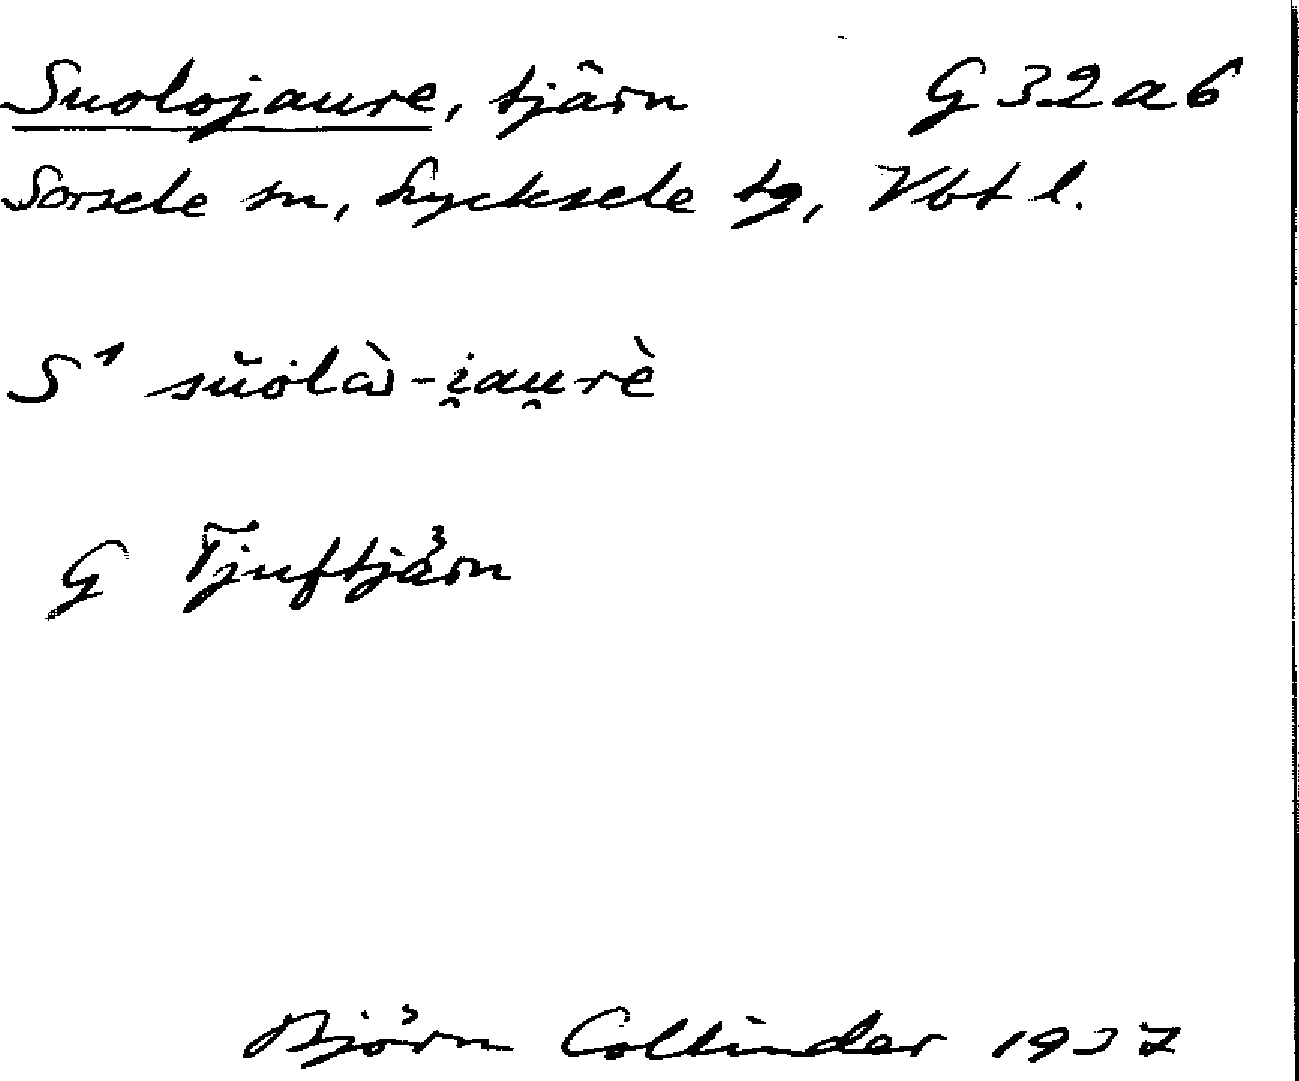 Suolojaure, tjärn G 32 a 6
Sorsele sn, Lycksele tg, Vbt l.
S¹ sŭölὰ-i̯au̯rè
G Tjuftjärn
Björn Collinder 1937